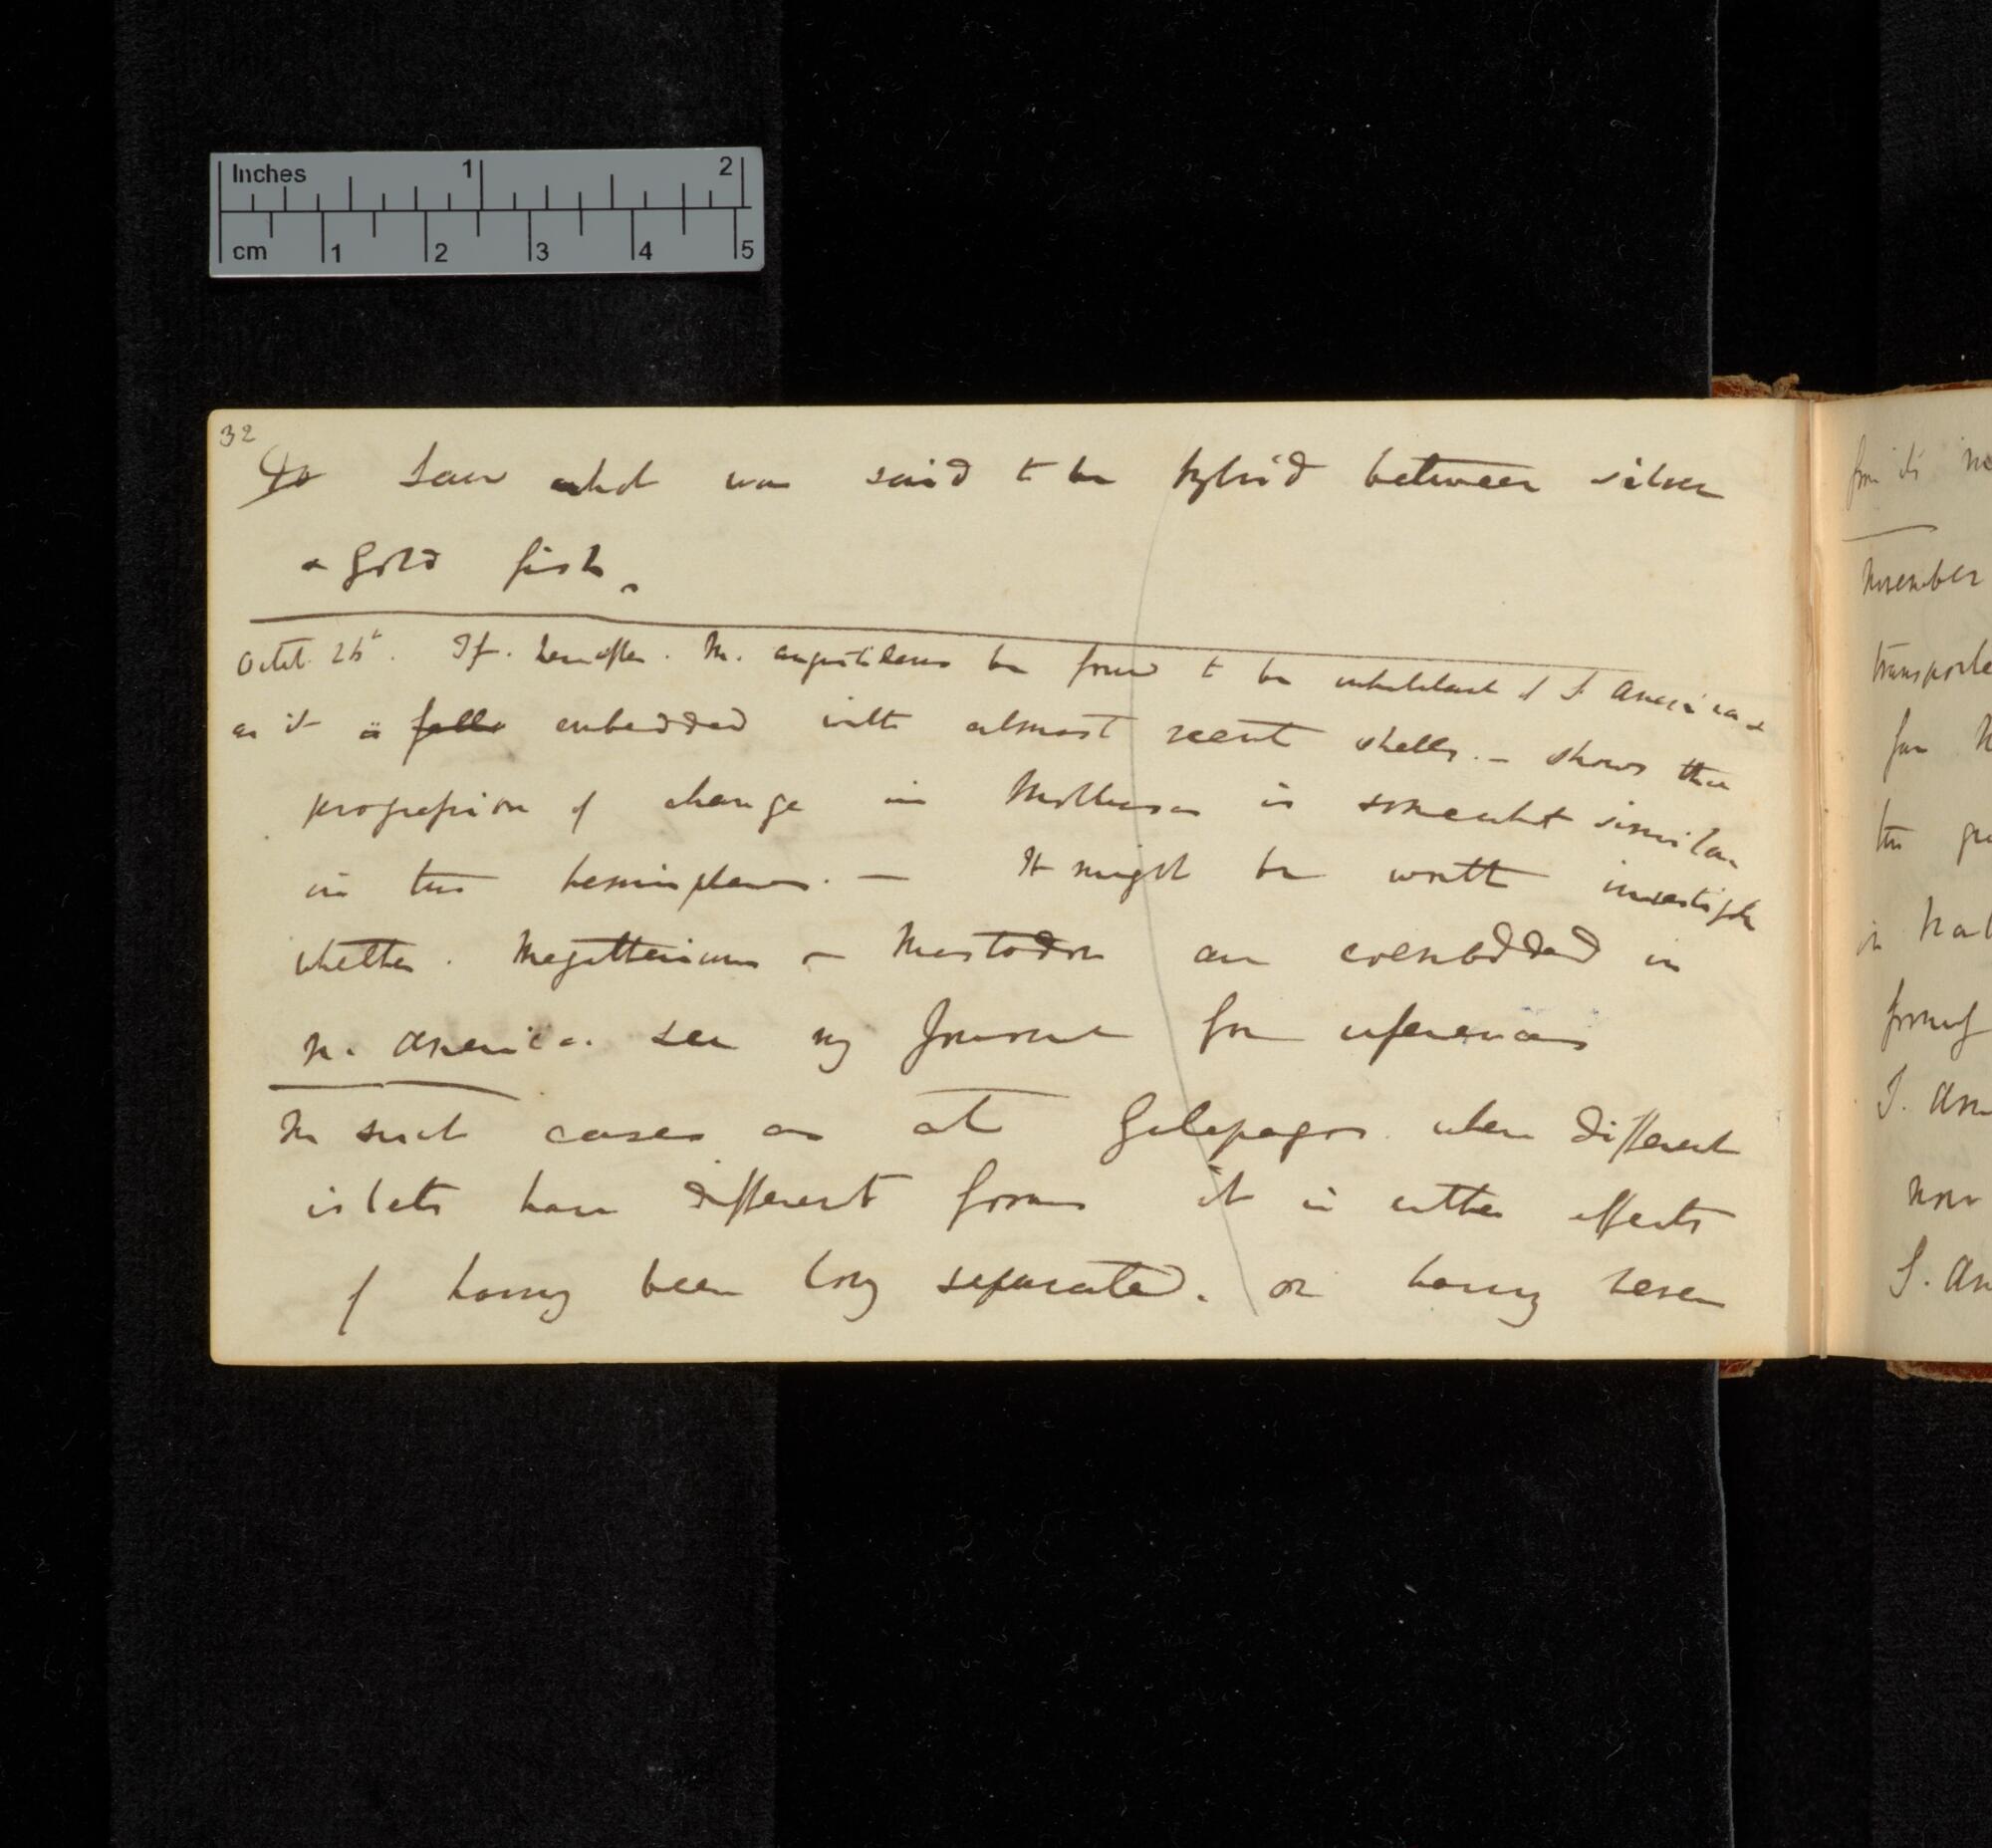 Inches 1 2
cm 1 2 3 4 5
32
Do Saw what was said to be hybrid between silver
& Gold fish.
Octob. 26th. If. hereafter. M. angustidens be found to be inhabitant of S America &
as it is falls embedded with almost recent shells. — shows that
progression of change in Mollusca is somewhat similar
in two hemispheres. — It might be worth investigate
whether. Megatherium or Mastodon are coembedded in
N. America. see my Journal for references
In such cases as at Galapagos. where different
islets have different forms it is either effects
of having been long separated. or having never
from its
November
transporte
for
the
in
form
S. Am
now
S. Am